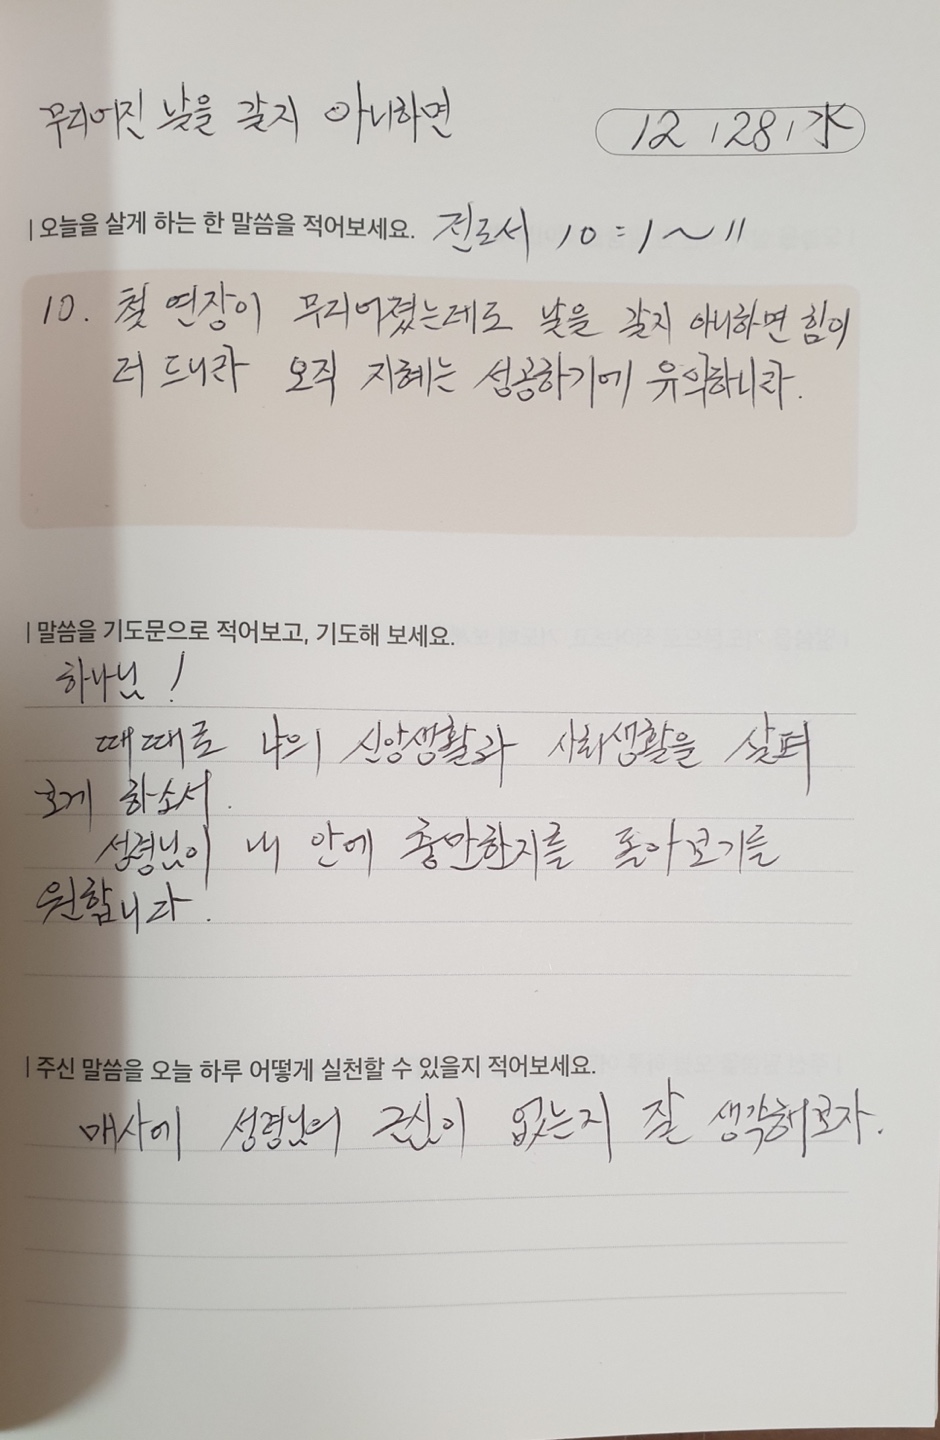 무디어진 날을 갈지 아니하면
12 , 28 , 水
오늘을 살게 하는 한 말씀을 적어보세요. 전도서 10:1~11
10. 철 연장이 무디어졌는데도 날을 갈지 아니하면 힘이
더 드니라 오직 지혜는 성공하기에 유익하니라.
말씀을 기도문으로 적어보고, 기도해 보세요.
하나님!
때때로 나의 신앙생활과 사회생활을 살펴
보게 하소서.
성령님이 내 안에 충만한지를 돌아보기를
원합니다.
주신 말씀을 오늘 하루 어떻게 실천할 수 있을지 적어보세요.
매사에 성령님의 근심이 없는지 잘 생각해보자.